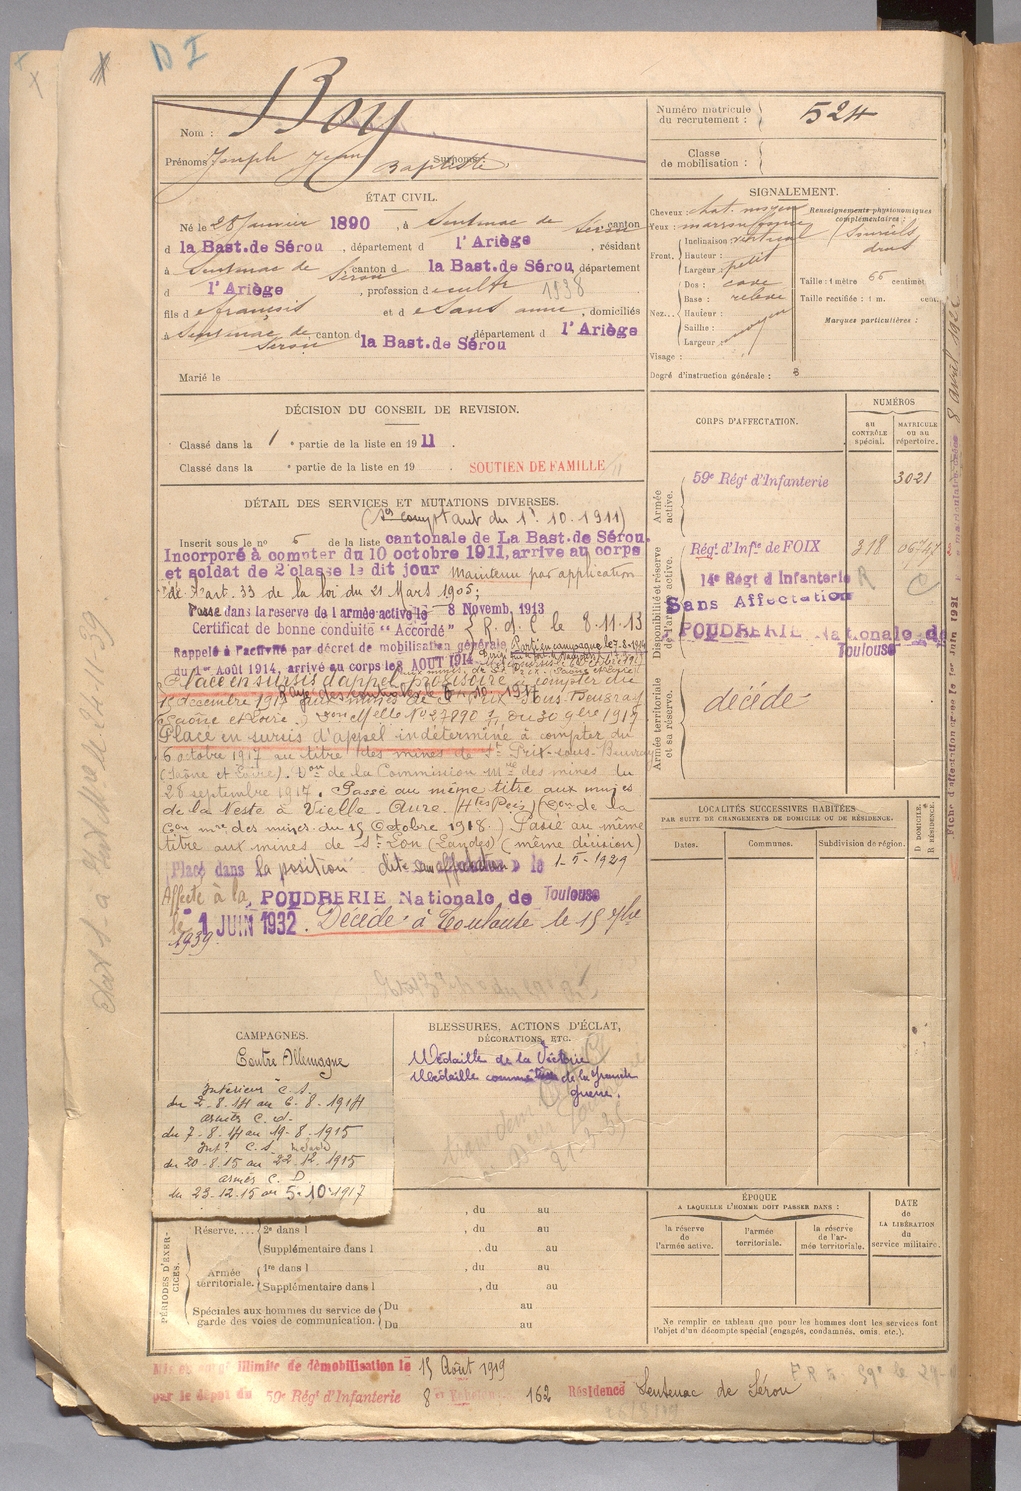 D I
Nom : Boy
Prénoms : Joseph Jean Baptiste Surnoms :
Numéro matricule du recrutement : 524
Classe de mobilisation :
ÉTAT CIVIL.
Né le 28 Janvier 1890, à Sentenac de Sérou canton
d la Bast. de Sérou, département d l'Ariège, résidant
à Sentenac de Sérou canton d la Bast. de Sérou, département
d l'Ariège, profession d cult 1938
fils d e françois et d e Sans anne, domiciliés
à Sentenac de Sérou canton d la Bast. de Sérou département d l'Ariège
Marié le
SIGNALEMENT.
Cheveux : chat. moyen
Yeux : marron
Front. Inclinaison vertical
Hauteur :
Largeur : petit
Nez... Dos : cave
Base : relevé
Hauteur :
Saillie :
Largeur : moyen
Visage :
Degré d'instruction générale : 3
Renseignements physionomiques complémentaires :
Sourcils
Taille : 1 mètre 66 centimèt.
Taille rectifiée : 1 m. cent.
Marques particulières :
DÉCISION DU CONSEIL DE REVISION.
Classé dans la 1 e partie de la liste en 1911.
Classé dans la e partie de la liste en 19 . SOUTIEN DE FAMILLE
DÉTAIL DES SERVICES ET MUTATIONS DIVERSES.
(Sce comptant du 1r. 10. 1911)
Inscrit sous le no 5 de la liste cantonale de La Bast. de Sérou.
Incorporé à compter du 10 octobre 1911, arrive au corps
et soldat de 2e classe le dit jour Maintenu par application
de l'art. 33 de la loi du 21 Mars 1905;
Passé dans la reserve de l'armée active le 8 Novemb. 1913
Certificat de bonne conduite "Accordé" R. d. C le 8.11.13
Rappelé à l'activité par décret de mobilisation générale Parti en campagne le 7-8-1914
du 1er Août 1914, arrivé au corps le 3 AOUT 1914
Placé en sursis d'appel provisoire à compter du
décembre 1917 aux mines de St Prix sous Beuvray
(Saône et Loire). Don Melle No 27890 du 30 9bre 1917
Placé en sursis d'appel indéterminé à compter du
6 octobre 1917 au titre des mines de St. Prix-sous-Beuvray
(Saône et Loire). Don de la Commission Mre des mines du
28 septembre 1917. Passé au même titre aux mines
de la Neste à Vielle-Aure (Htes Pyr) (Don de la
Con mre des mines du 15 Octobre 1918.) Passé au même
titre aux mines de St Lon (Landes) (même décision)
Placé dans la position dite sans affectation » le 1-5-1929
Affecté à la POUDRERIE Nationale de Toulouse
le 1 JUIN 1932. Décédé à Toulouse le 15 7bre
1939.
CORPS D'AFFECTATION.
NUMÉROS
AU CONTRÔLE spécial.
MATRICULE OU AU répertoire.
Armée active.
59e Régt d'Infanterie 3021
Disponibilité et réserve de l'armée active.
Régt. d'Infie de FOIX 318 06747
14e Régt d'Infanterie R
Sans Affectation
POUDRERIE Nationale de
Toulouse
Armée territoriale
décédé
LOCALITÉS SUCCESSIVES HABITÉES
PAR SUITE DE CHANGEMENTS DE DOMICILE OU DE RÉSIDENCE.
Dates.
Communes.
Subdivision de région.
D DOMICILE.
R RÉSIDENCE.
CAMPAGNES.
Contre Allemagne
Intérieur C. S.
du 2-8-14 au 6-8-1914
armées C. d.
du 7-8-14 au 19-8-1915
Intr C. S.
du 20-8-15 au 22-12-1915
armées C. D
du 23-12-15 au 5-10-1917
BLESSURES, ACTIONS D'ÉCLAT,
DÉCORATIONS, ETC.
Médaille de la Victoire
Médaille comméive de la Grande
guerre.
21-3-35
PÉRIODES D'EXERCICES.
, du au
Réserve.... 2e dans l , du au
Supplémentaire dans l , du au
Armée territoriale.
1re dans l , du au
Supplémentaire dans l , du au
Spéciales aux hommes du service de garde des voies de communication.
Du au
Du au
ÉPOQUE
A LAQUELLE L'HOMME DOIT PASSER DANS :
la réserve de l'armée active.
l'armée territoriale.
la réserve de l'armée territoriale.
DATE de LA LIBÉRATION du service militaire.
Ne remplir ce tableau que pour les hommes dont les services font
l'objet d'un décompte spécial (engagés, condamnés, omis, etc.).
Mis en congé illimité de démobilisation le 15 Août 1919
par le dépôt du 59e Régt d'Infanterie 8e Echelon 162 Résidence Sentenac de Sérou